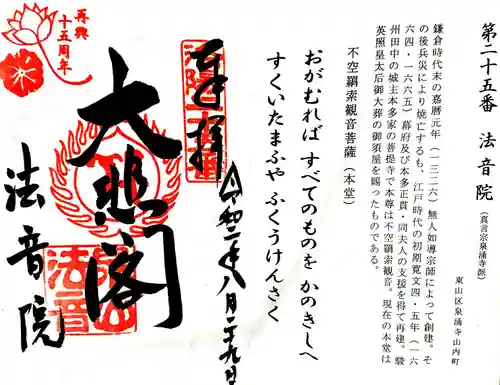 第二十五番 法音院（真言宗泉涌寺派）
東山区泉涌寺山内町
鎌倉時代末の嘉暦元年（一三二六）無人如導宗師によって創建。そ
の後兵災により焼亡するも、江戸時代の初期寛文四・五年（一六
六四・一六六五）幕府及び本多正貫・同夫人の支援を得て再建。駿
州田中の城主本多家の菩提寺で本尊は不空羂索観音。現在の本堂は
英照皇太后御大葬の御須屋を賜ったものである。
不空羂索観音菩薩（本堂）
おがむれば すべてのものを かのきしへ
すくいたまふや ふくうけんさく
奉拝
令和二年八月二十九日
大悲閣
法音院
再興
十五周年